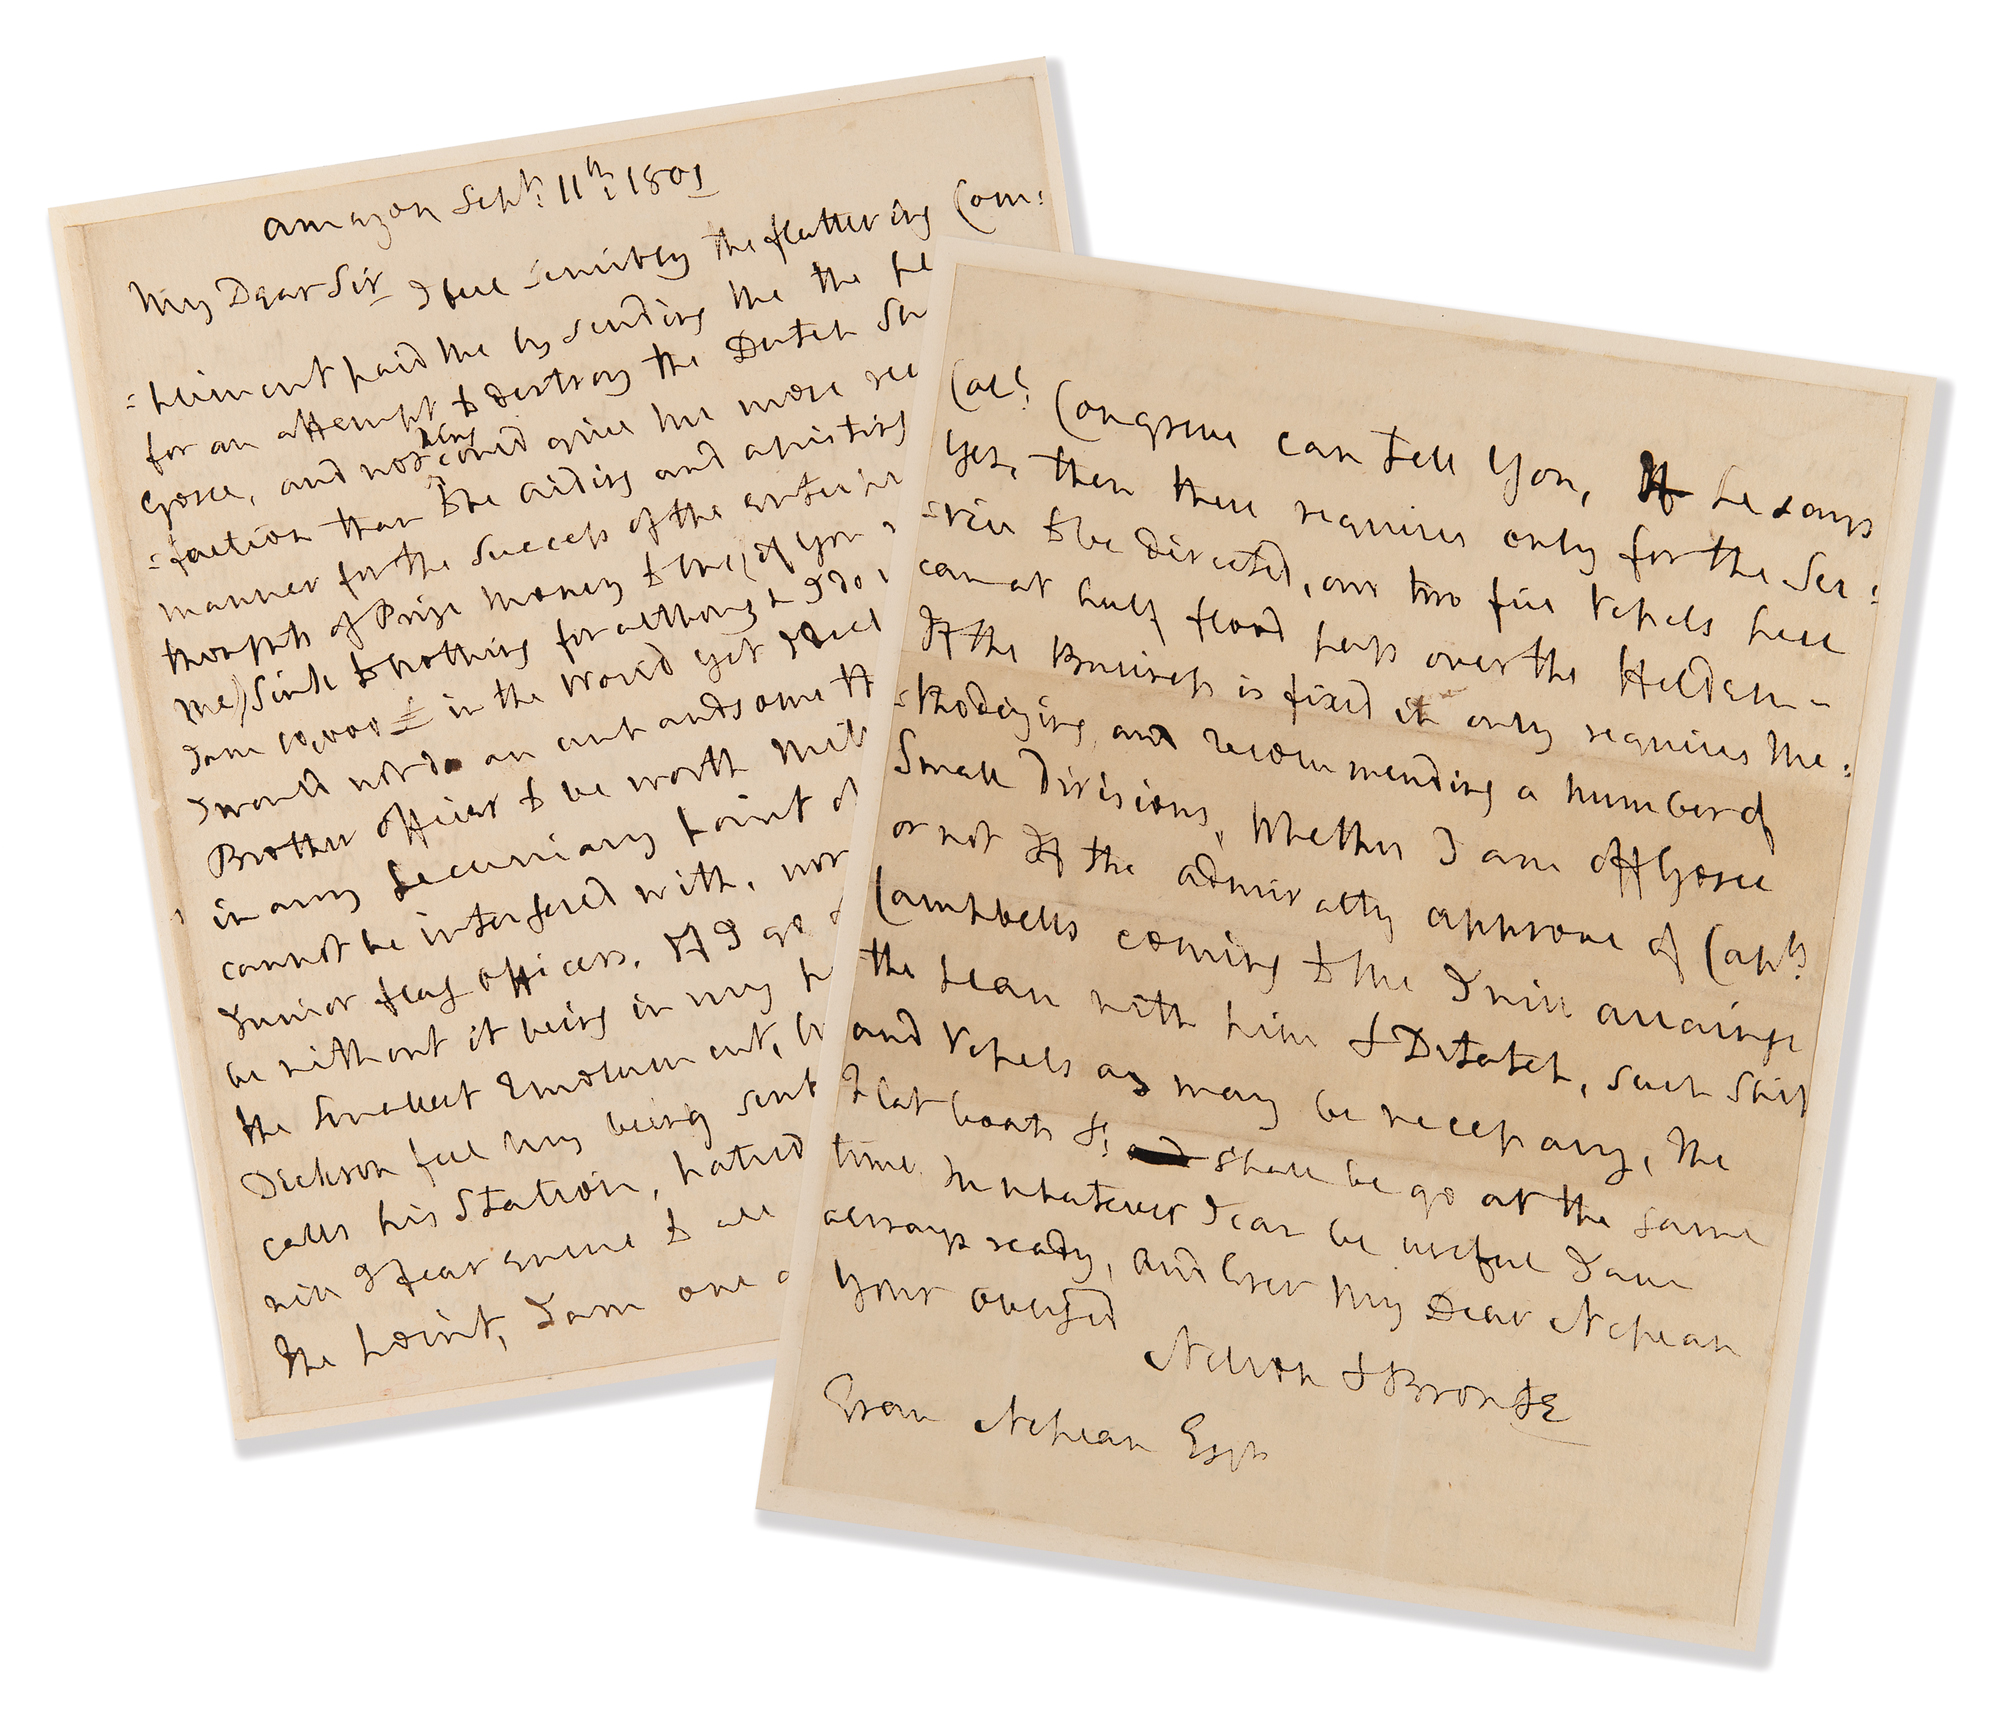 Amazon Sept: 11th: 1801
My Dear Sir I feel sensibly the flattering Com:
:pliment paid me by sending me the
for an attempt to destroy the Dutch
Goree, and nothing could give me more
:faction than the aiding and assisting
manner for the success of the
thoughts of Prize Money to one, of you
me) sink to nothing for although I do
I am 10,000£ in the World yet
I would not do an unhandsome
Brother officer to be worth
in any pecuniary point of
cannot be interfered with, nor
Junior flag officers. If I go
be without it being in my
the smallest Emolument,
Dickson feel my being sent
calls his Station, hatred
will I fear ensue to all
the point, I am one
Coll: Congreve can tell You, If he says
Yes, then there requires only for the Ser:
:vice to be directed, our two fire Vessels here
can at half flood pass over the Helder –
If the business is fixed it only requires Me:
:thodizing, and recommending a number of
Small Divisions, Whether I am off Goree
or not If the Admiralty approve of Capt:
Campbells coming to me I will arrainge
the plan with him & Ditatch, such Ships
and Vessels as may be necessary, the
Flat boats &c: and shall be go at the same
time. In whatever I can be useful I am
always ready, and Ever My Dear Nepean
Your overjed
Nelson & Bronte
Evan Nepean Esqr